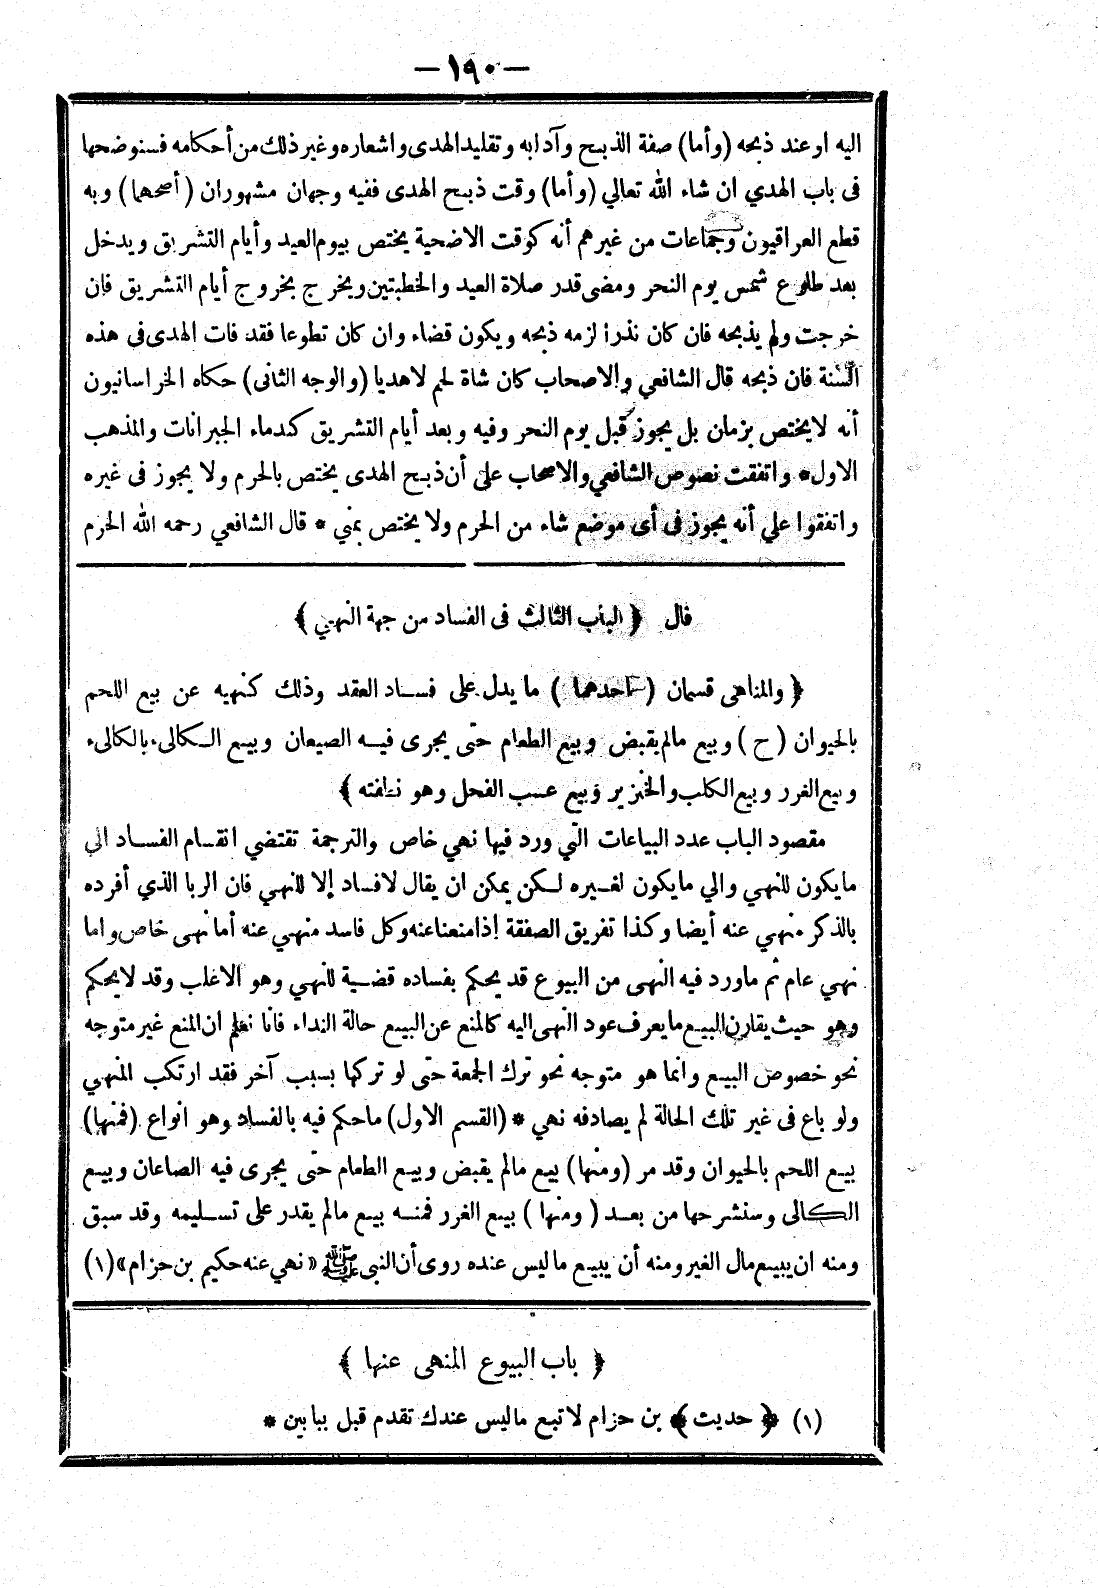 — ١٩٠ —
اليه او عند ذبحه (وأما) صفة الذبح وآدابه وتقليد الهدى واشعاره وغير ذلك من أحكامه فسنوضحها
فى باب الهدي ان شاء الله تعالي (وأما) وقت ذبح الهدى ففيه وجهان مشهوران (أصحهما) وبه
قطع العراقيون وجماعات من غيرهم أنه كوقت الاضحية يختص بيوم العيد وأيام التشريق ويدخل
بعد طلوع شمس يوم النحر ومضى قدر صلاة العيد والخطبتين ويخرج بخروج أيام التشريق فان
خرجت ولم يذبحه فان كان نذرا لزمه ذبحه ويكون قضاء وان كان تطوعا فقد فات الهدى فى هذه
السنة فان ذبحه قال الشافعي والاصحاب كان شاة لحم لاهديا (والوجه الثانى) حكاه الخراسانيون
أنه لا يختص بزمان بل يجوز قبل يوم النحر وفيه وبعد أيام التشريق كدماء الجبرانات والمذهب
الاول * واتفقت نصوص الشافعي والاصحاب على أن ذبح الهدى يختص بالحرم ولا يجوز فى غيره
واتفقوا على أنه يجوز فى أى موضع شاء من الحرم ولا يختص بمني * قال الشافعي رحمه الله الحرم
قال ﴿ الباب الثالث فى الفساد من جهة النهى ﴾
﴿ والمناهى قسمان ( احدهما ) ما يدل على فساد العقد وذلك كنهيه عن بيع اللحم
بالحيوان (ح) وبيع مالم يقبض وبيع الطعام حتى يجرى فيه الصيعان وبيع الكالىء بالكالىء
وبيع الغرر وبيع الكلب والخنزير وبيع عسب الفحل وهو نطفته ﴾
مقصود الباب عدد البياعات التي ورد فيها نهي خاص والترجمة تقتضي انقسام الفساد الي
ما يكون للنهي والي ما يكون لغيره لكن يمكن ان يقال لافساد إلا للنهي فان الربا الذي أفرده
بالذكر منهي عنه أيضا وكذا تفريق الصفقة إذا منعنا عنه وكل فاسد منهي عنه أما نهى خاص واما
نهي عام ثم ماورد فيه النهى من البيوع قد يحكم بفساده قضية للنهي وهو الاغلب وقد لا يحكم
وهو حيث يقارن البيع ما يعرف عود النهى اليه كالمنع عن البيع حالة النداء فانا نعلم ان المنع غير متوجه
نحو خصوص البيع وانما هو متوجه نحو ترك الجمعة حتى لو تركها بسبب آخر فقد ارتكب المنهي
ولو باع فى غير تلك الحالة لم يصادفه نهي * (القسم الاول) ماحكم فيه بالفساد وهو انواع (فمنها)
بيع اللحم بالحيوان وقد مر (ومنها) بيع مالم يقبض وبيع الطعام حتى يجرى فيه الصاعان وبيع
الكالى وسنشرحها من بعد (ومنها) بيع الغرر فمنه بيع مالم يقدر على تسليمه وقد سبق
ومنه ان يبيع مال الغير ومنه أن يبيع ماليس عنده روى أن النبى ﷺ «نهي عنه حكيم بن حزام» (١)
﴿ باب البيوع المنهى عنها ﴾
(١) ﴿ حديث ﴾ بن حزام لا تبع ماليس عندك تقدم قبل ببابين *